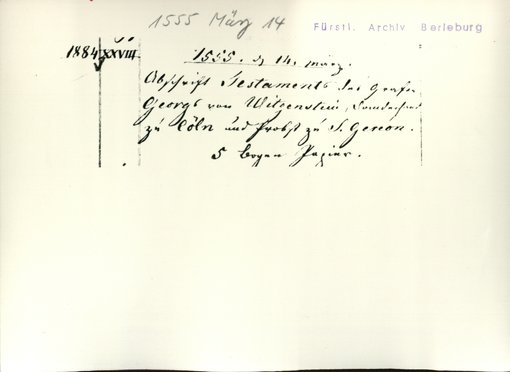 1555 März 14
Fürstl. Archiv Berleburg
1884 XXVIII
1555. d 14. März.
Abschrift Testaments des Grafen
Georgs von Witgenstein, Domdechant
zu Cöln und Probst zu S. Gereon.
5 Bogen Papier.